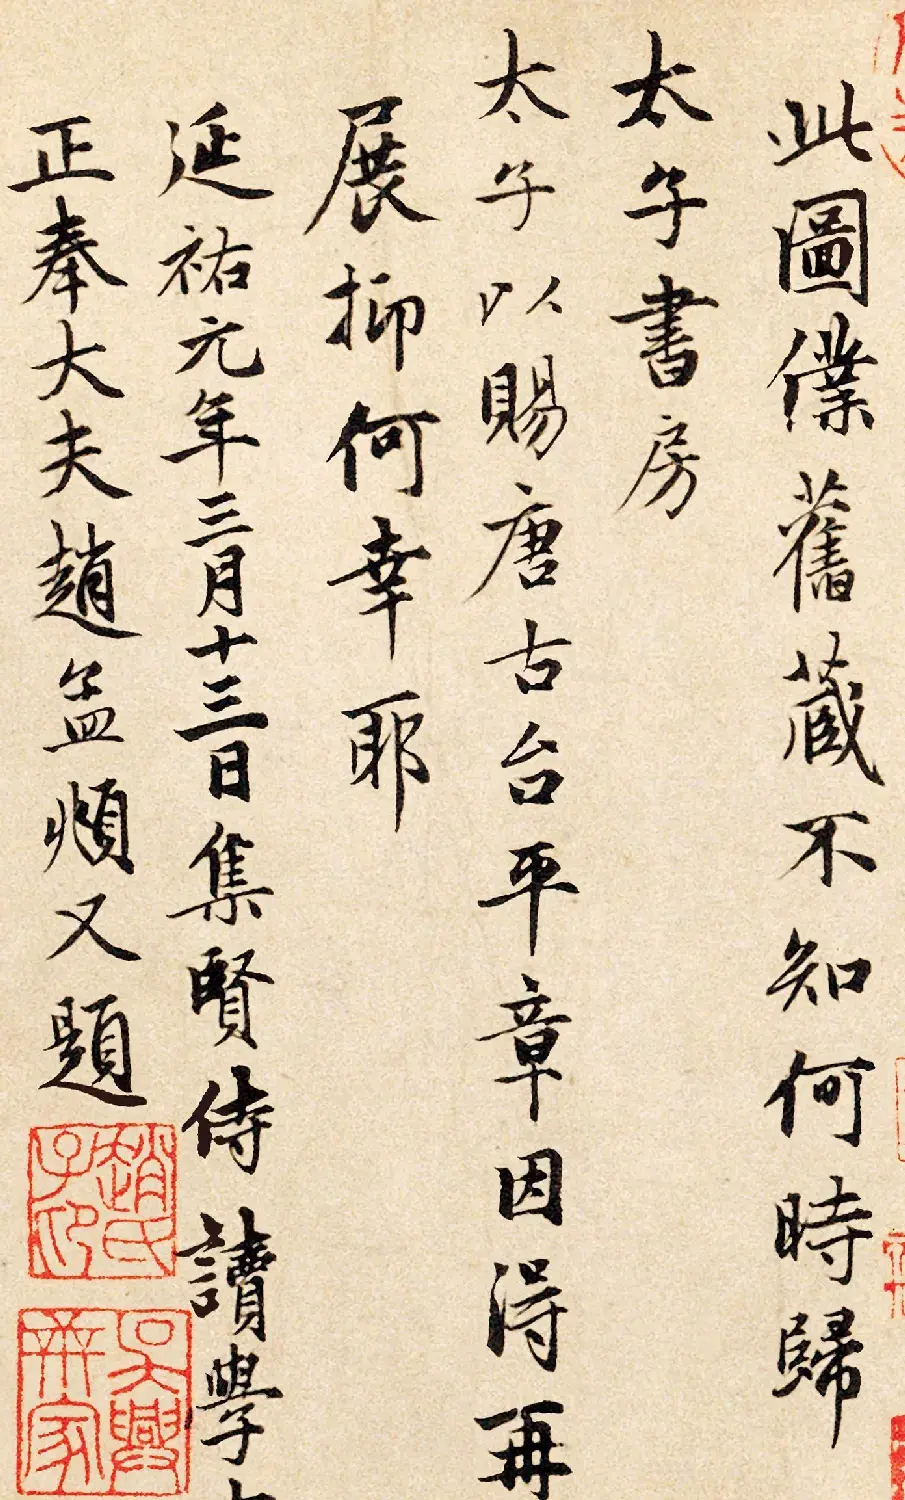 此圖僕舊藏不知何時歸
太子書房
太子以賜唐古台平章因得再
展抑何幸耶
延祐元年三月十三日集賢侍讀學
正奉大夫趙孟頫又題
趙氏子印
吳興世家